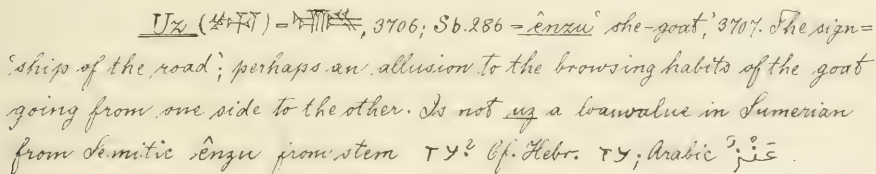 Uz () = , 3706; Sb. 286 = ênzu 'she-goat,' 3707. The sign =
'ship of the road'; perhaps an allusion to the browsing habits of the goat
going from one side to the other. Is not uz a loanvalue in Sumerian
from Semitic ênzu from stem עז? Cf. Hebr. עז; Arabic عَنْزٌ.